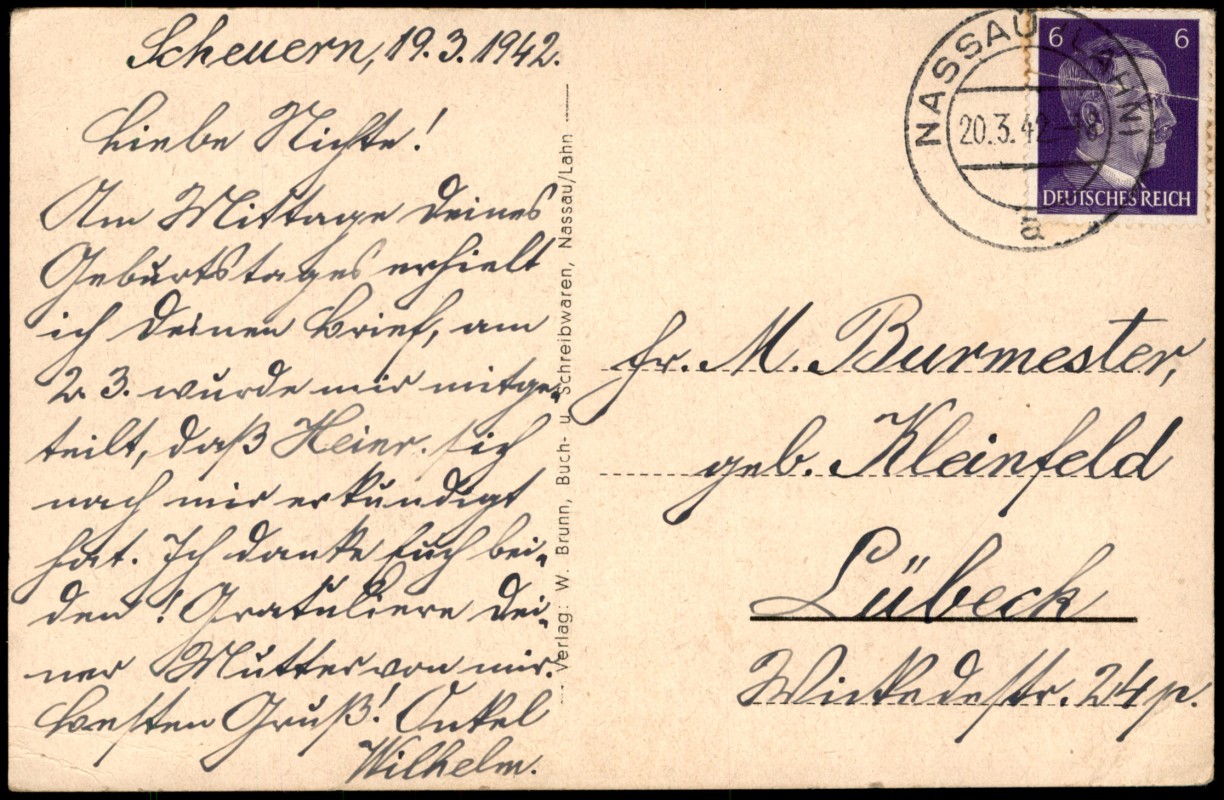 Scheuern, 19.3.1942.
Liebe Nichte!
Am Mittage Deines
Geburtstages erhielt
ich Deinen Brief, am
2. 3. wurde mir mitge-
teilt, daß Heinr. sich
nach mir erkundigt
hat. Ich danke Euch bei-
den! Gratuliere Dei-
ner Mutter von mir.
Besten Gruß! Onkel
Wilhelm.
Verlag: W. Brunn, Buch- u. Schreibwaren, Nassau/Lahn
NASSAU (LAHN)
20.3.42.-18
a
6 6
DEUTSCHES REICH
Fr. M. Burmester,
geb. Kleinfeld
Lübeck
Wickedestr. 24 p.